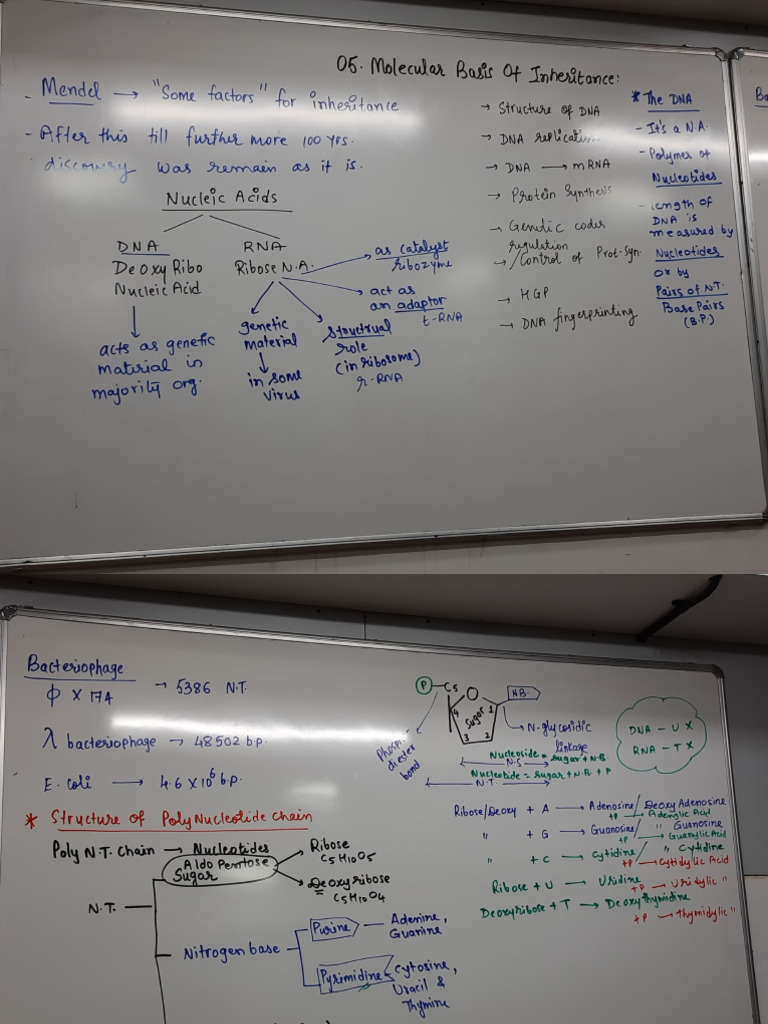 05. Molecular Basis Of Inheritance:
- Mendel → "Some factors" for inheritance
- After this till further more 100 yrs.
discovery was remain as it is.
Nucleic Acids
DNA
DeOxy Ribo
Nucleic Acid
acts as genetic
material in
majority org.
RNA
Ribose N.A.
genetic
material
in some
virus
structrual
role
(in ribosome)
r-RNA
as catalyst
ribozyme
act as
an adaptor
t-RNA
→ Structure of DNA
→ DNA replication
→ DNA → mRNA
→ Protein Synthesis
→ Genetic codes
regulation
→ /Control of Prot-Syn.
→ HGP
→ DNA fingerprinting
* The DNA
- It's a N.A.
- Polymer of
Nucleotides
- length of
DNA is
measured by
Nucleotides
or by
Pairs of N.T.
Base Pairs
(B.P.)
Ba
Bacteriophage
ϕ X 174 → 5386 N.T.
λ bacteriophage → 48502 b.p.
E. coli → 4.6 X 10⁶ b.p.
* Structure of PolyNucleotide chain
Poly N.T. Chain → Nucleotides
N.T.
Aldo Pentose
Sugar
Ribose
C5H10O5
Deoxyribose
C5H10O4
Nitrogen base
Purine
Adenine,
Guanine
Pyrimidine
Cytosine,
Uracil &
Thymine
P
C5
O
4
Sugar
1
3
2
N.B.
Phosphodiester
bond
N-glycosidic
linkage
Nucleoside = sugar + N.B.
N.S
Nucleotide = sugar + N.B + P
N.T.
DNA - U X
RNA - T X
Ribose/Deoxy + A → Adenosine/Deoxy Adenosine
+P → Adenylic Acid
" + G → Guanosine/ " Guanosine
+P → Guanylic Acid
" + C → Cytidine/ " Cytidine
+P → Cytidylic Acid
Ribose + U → Uridine
+P → Uridylic "
Deoxyribose + T → DeoxyThymidine
+P → Thymidylic "